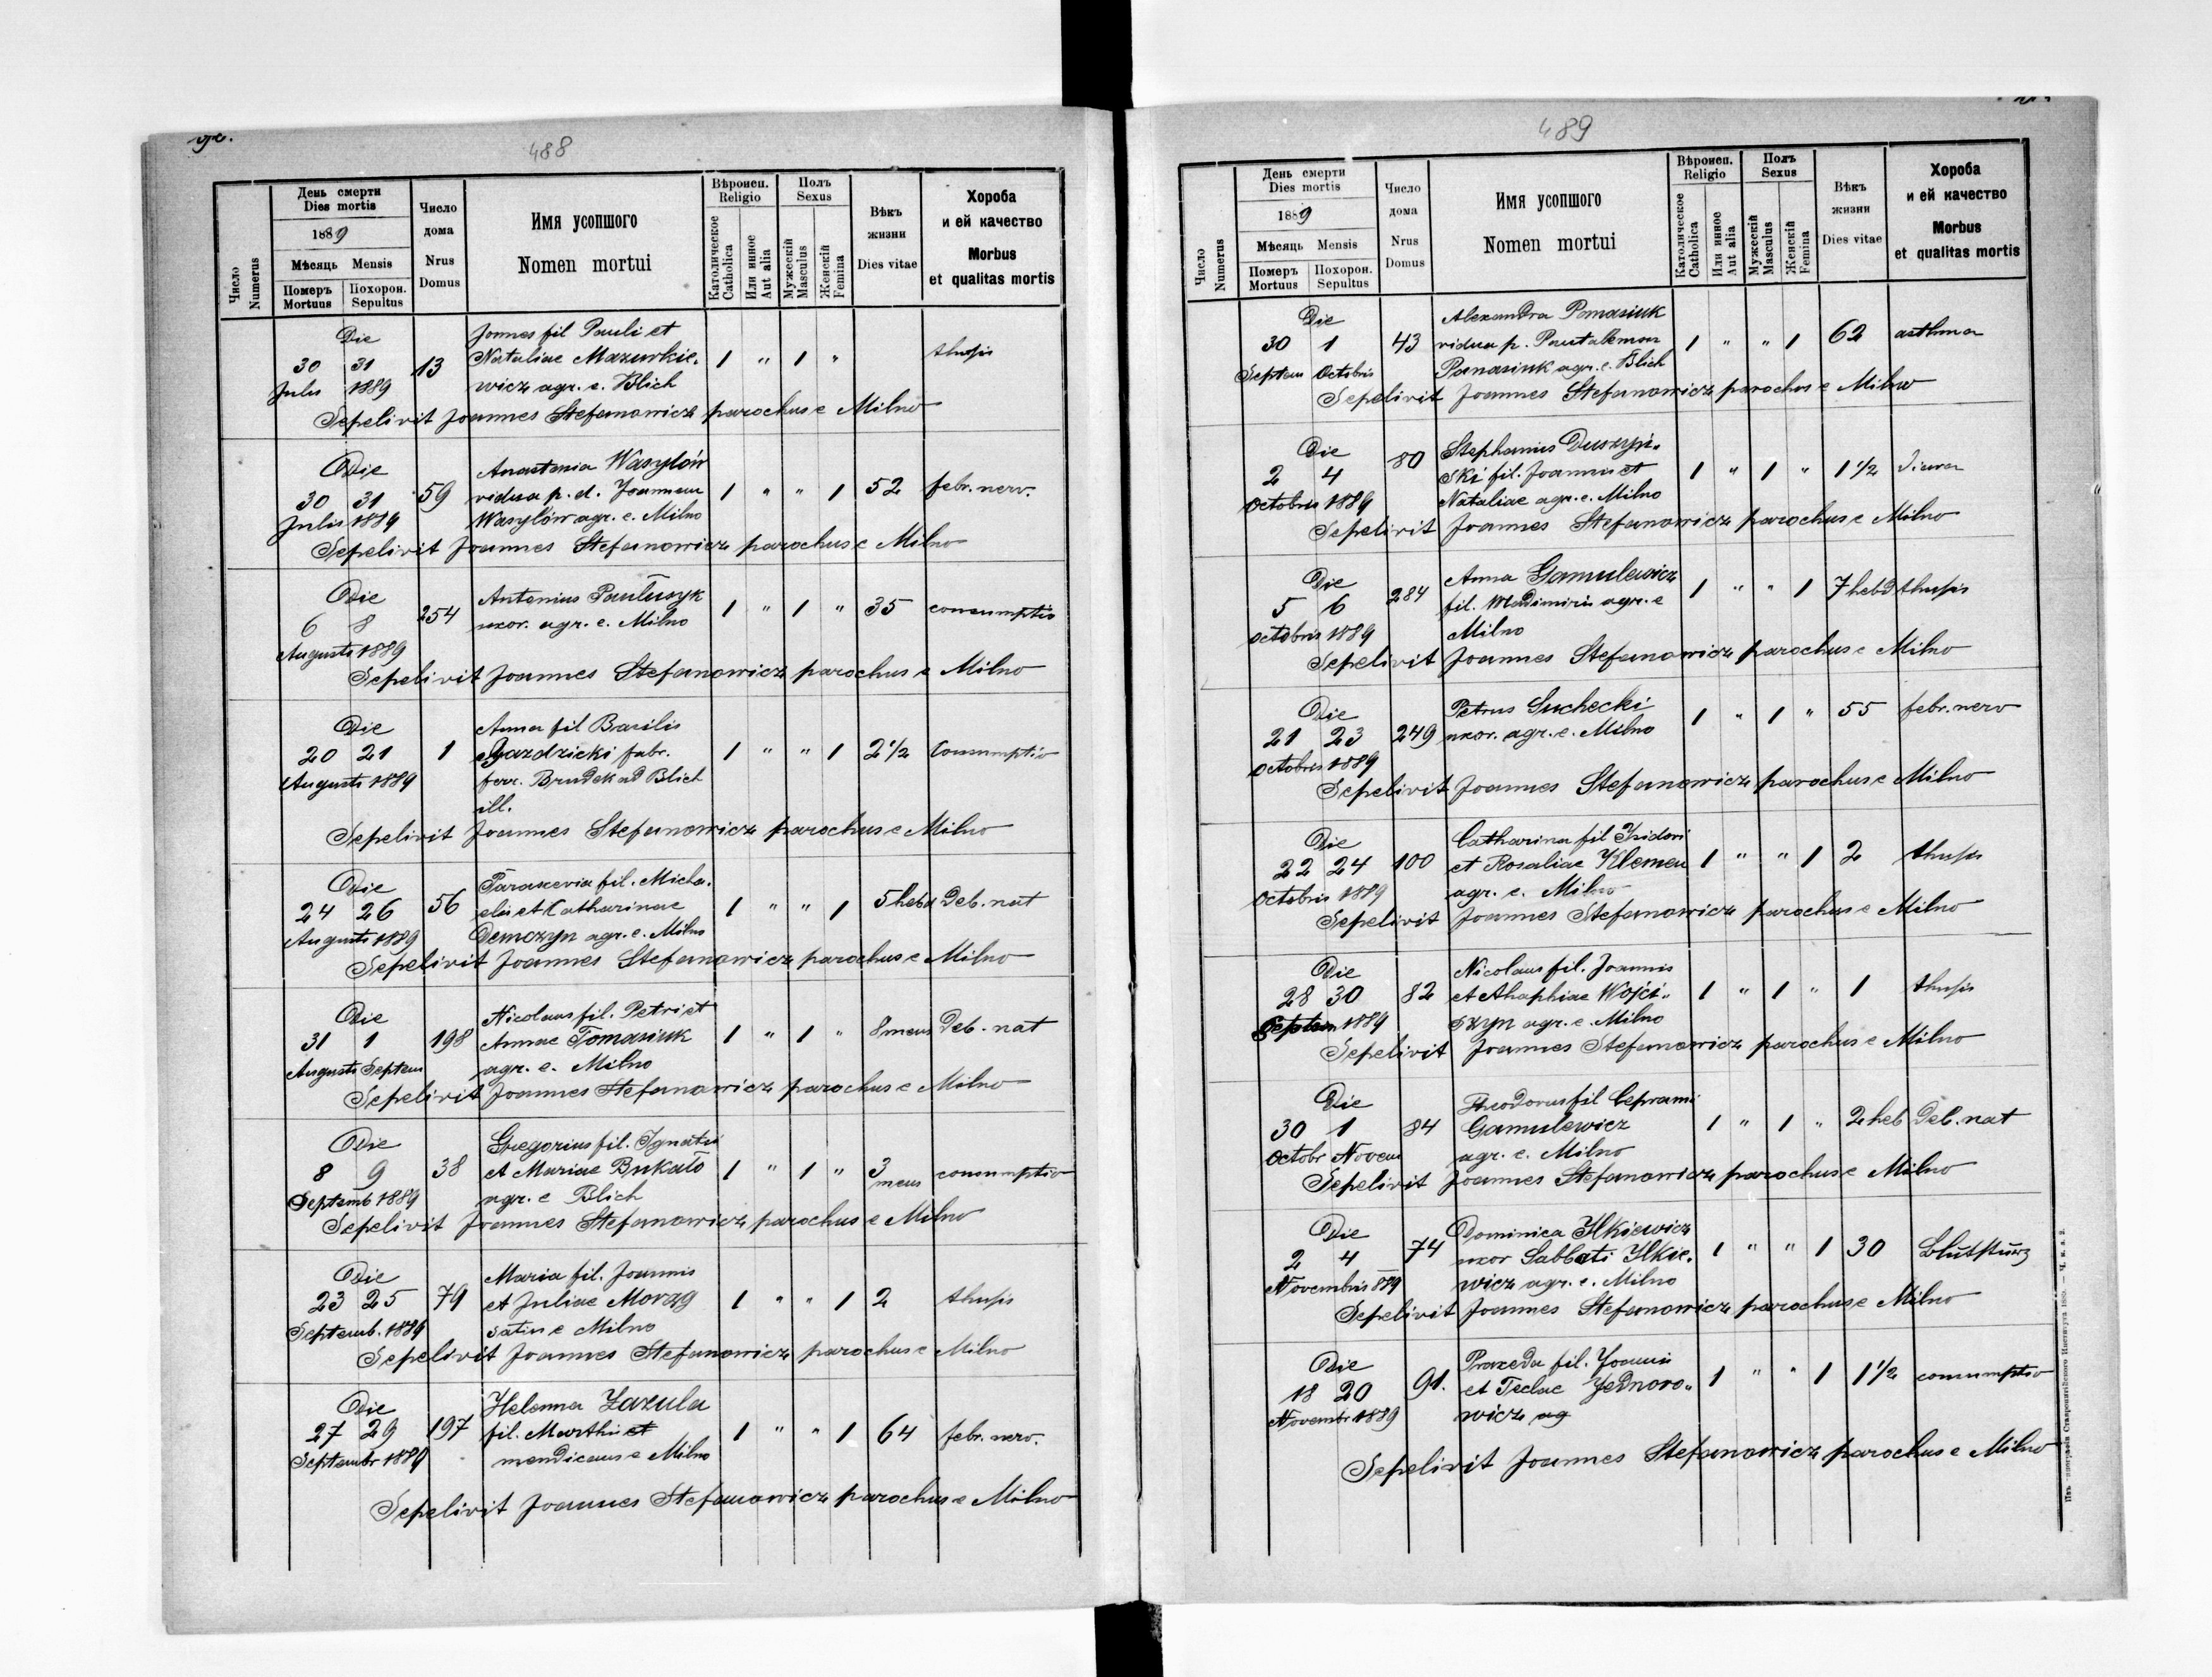 488
День смерти
Dies mortis
1889
Мѣсяць Mensis
Померъ Mortuus
Похорон. Sepultus
Число Numerus
Число дома
Nrus Domus
Имя усопшого
Nomen mortui
Вѣроисп.
Religio
Католическое Catholica
Или инное Aut alia
Полъ
Sexus
Мужескій Masculus
Женскій Femina
Вѣкъ жизни
Dies vitae
Хороба
и ей качество
Morbus
et qualitas mortis
Die Joannes fil Pauli et
30 31 13 Nataliae Mazurkie- 1 " 1 " thusis
Julii 1889 wicz agr. e. Blich
Sepelivit Joannes Stefanowicz parochus e Milno
Die Anastasia Wasylów
30 31 59 vidua p. d. Joannem 1 " " 1 52 febr. nerv.
Julii 1889 Wasylów agr. e. Milno
Sepelivit Joannes Stefanowicz parochus e Milno
Die Antonius Paulusyk
6 8 254 uxor. agr. e. Milno 1 " 1 " 35 consumptio
Augusti 1889
Sepelivit Joannes Stefanowicz parochus e Milno
Die Anna fil Basilii
20 21 1 Gazdzicki fabr. 1 " " 1 2 1/2 Consumptio
Augusti 1889 ferr. Brudek ad Blich
ill.
Sepelivit Joannes Stefanowicz parochus e Milno
Die Parascevia fil. Micha-
24 26 56 elis et Catharinae 1 " " 1 5 hebd Deb. nat
Augusti 1889 Demczyn agr. e. Milno
Sepelivit Joannes Stefanowicz parochus e Milno
Die Nicolaus fil. Petri et
31 1 198 Annae Tomasiuk 1 " 1 " 8 mens Deb. nat
Augusti Septem agr. e. Milno
Sepelivit Joannes Stefanowicz parochus e Milno
Die Gregorius fil. Ignatii
8 9 38 et Mariae Bukało 1 " 1 " 3 mens consumptio
Septemb 1889 agr. e Blich
Sepelivit Joannes Stefanowicz parochus e Milno
Die Maria fil. Joannis
23 25 79 et Juliae Morąg 1 " " 1 2 thusis
Septemb. 1889 e Milno
Sepelivit Joannes Stefanowicz parochus e Milno
Die Helenna Zazula
27 29 197 fil. Marthii et 1 " " 1 64 febr. nerv.
Septembr 1889 mendicans e Milno
Sepelivit Joannes Stefanowicz parochus e Milno
489
День смерти
Dies mortis
1889
Мѣсяць Mensis
Померъ Mortuus
Похорон. Sepultus
Число Numerus
Число дома
Nrus Domus
Имя усопшого
Nomen mortui
Вѣроисп.
Religio
Католическое Catholica
Или инное Aut alia
Полъ
Sexus
Мужескій Masculus
Женскій Femina
Вѣкъ жизни
Dies vitae
Хороба
и ей качество
Morbus
et qualitas mortis
Die Alexandra Panasiuk
30 1 43 vidua p. Pantalemon 1 " " 1 62 asthma
Septem Octobris Panasiuk agr. e. Blich
Sepelivit Joannes Stefanowicz parochus e Milno
Die Stephanus Duszyń-
2 4 80 ski fil. Joannis et 1 " 1 " 1 1/2
Octobris 1889 Nataliae agr. e. Milno
Sepelivit Joannes Stefanowicz parochus e Milno
Die Anna Gamulewicz
5 6 284 fil. Wladimirii agr. e 1 " " 1 7 hebd thusis
Octobris 1889 Milno
Sepelivit Joannes Stefanowicz parochus e Milno
Die Petrus Suchecki
21 23 249 uxor. agr. e. Milno 1 " 1 " 55 febr. nerv
Octobris 1889
Sepelivit Joannes Stefanowicz parochus e Milno
Die Catharina fil Isidori
22 24 100 et Rosaliae Klemen 1 " " 1 2 thusis
Octobris 1889 agr. e. Milno
Sepelivit Joannes Stefanowicz parochus e Milno
Die Nicolaus fil. Joannis
28 30 82 et Ahaphiae Wojci- 1 " 1 " 1 thusis
Septem 1889 szyn agr. e. Milno
Sepelivit Joannes Stefanowicz parochus e Milno
Die Theodorus fil Ceprami
30 1 84 Gamulewicz 1 " 1 " 2 heb Deb. nat
Octobr Novem agr. e. Milno
Sepelivit Joannes Stefanowicz parochus e Milno
Die Dominica Ilkiewicz
2 4 74 uxor Sabbati Ilkie- 1 " " 1 30 Blutsturz
Novembris 889 wicz agr. e. Milno
Sepelivit Joannes Stefanowicz parochus e Milno
Die Praxeda fil. Joannis
18 20 91. et Teclae Jednoro- 1 " " 1 1 1/2 consumptio
Novembr 1889 wicz ag
Sepelivit Joannes Stefanowicz parochus e Milno